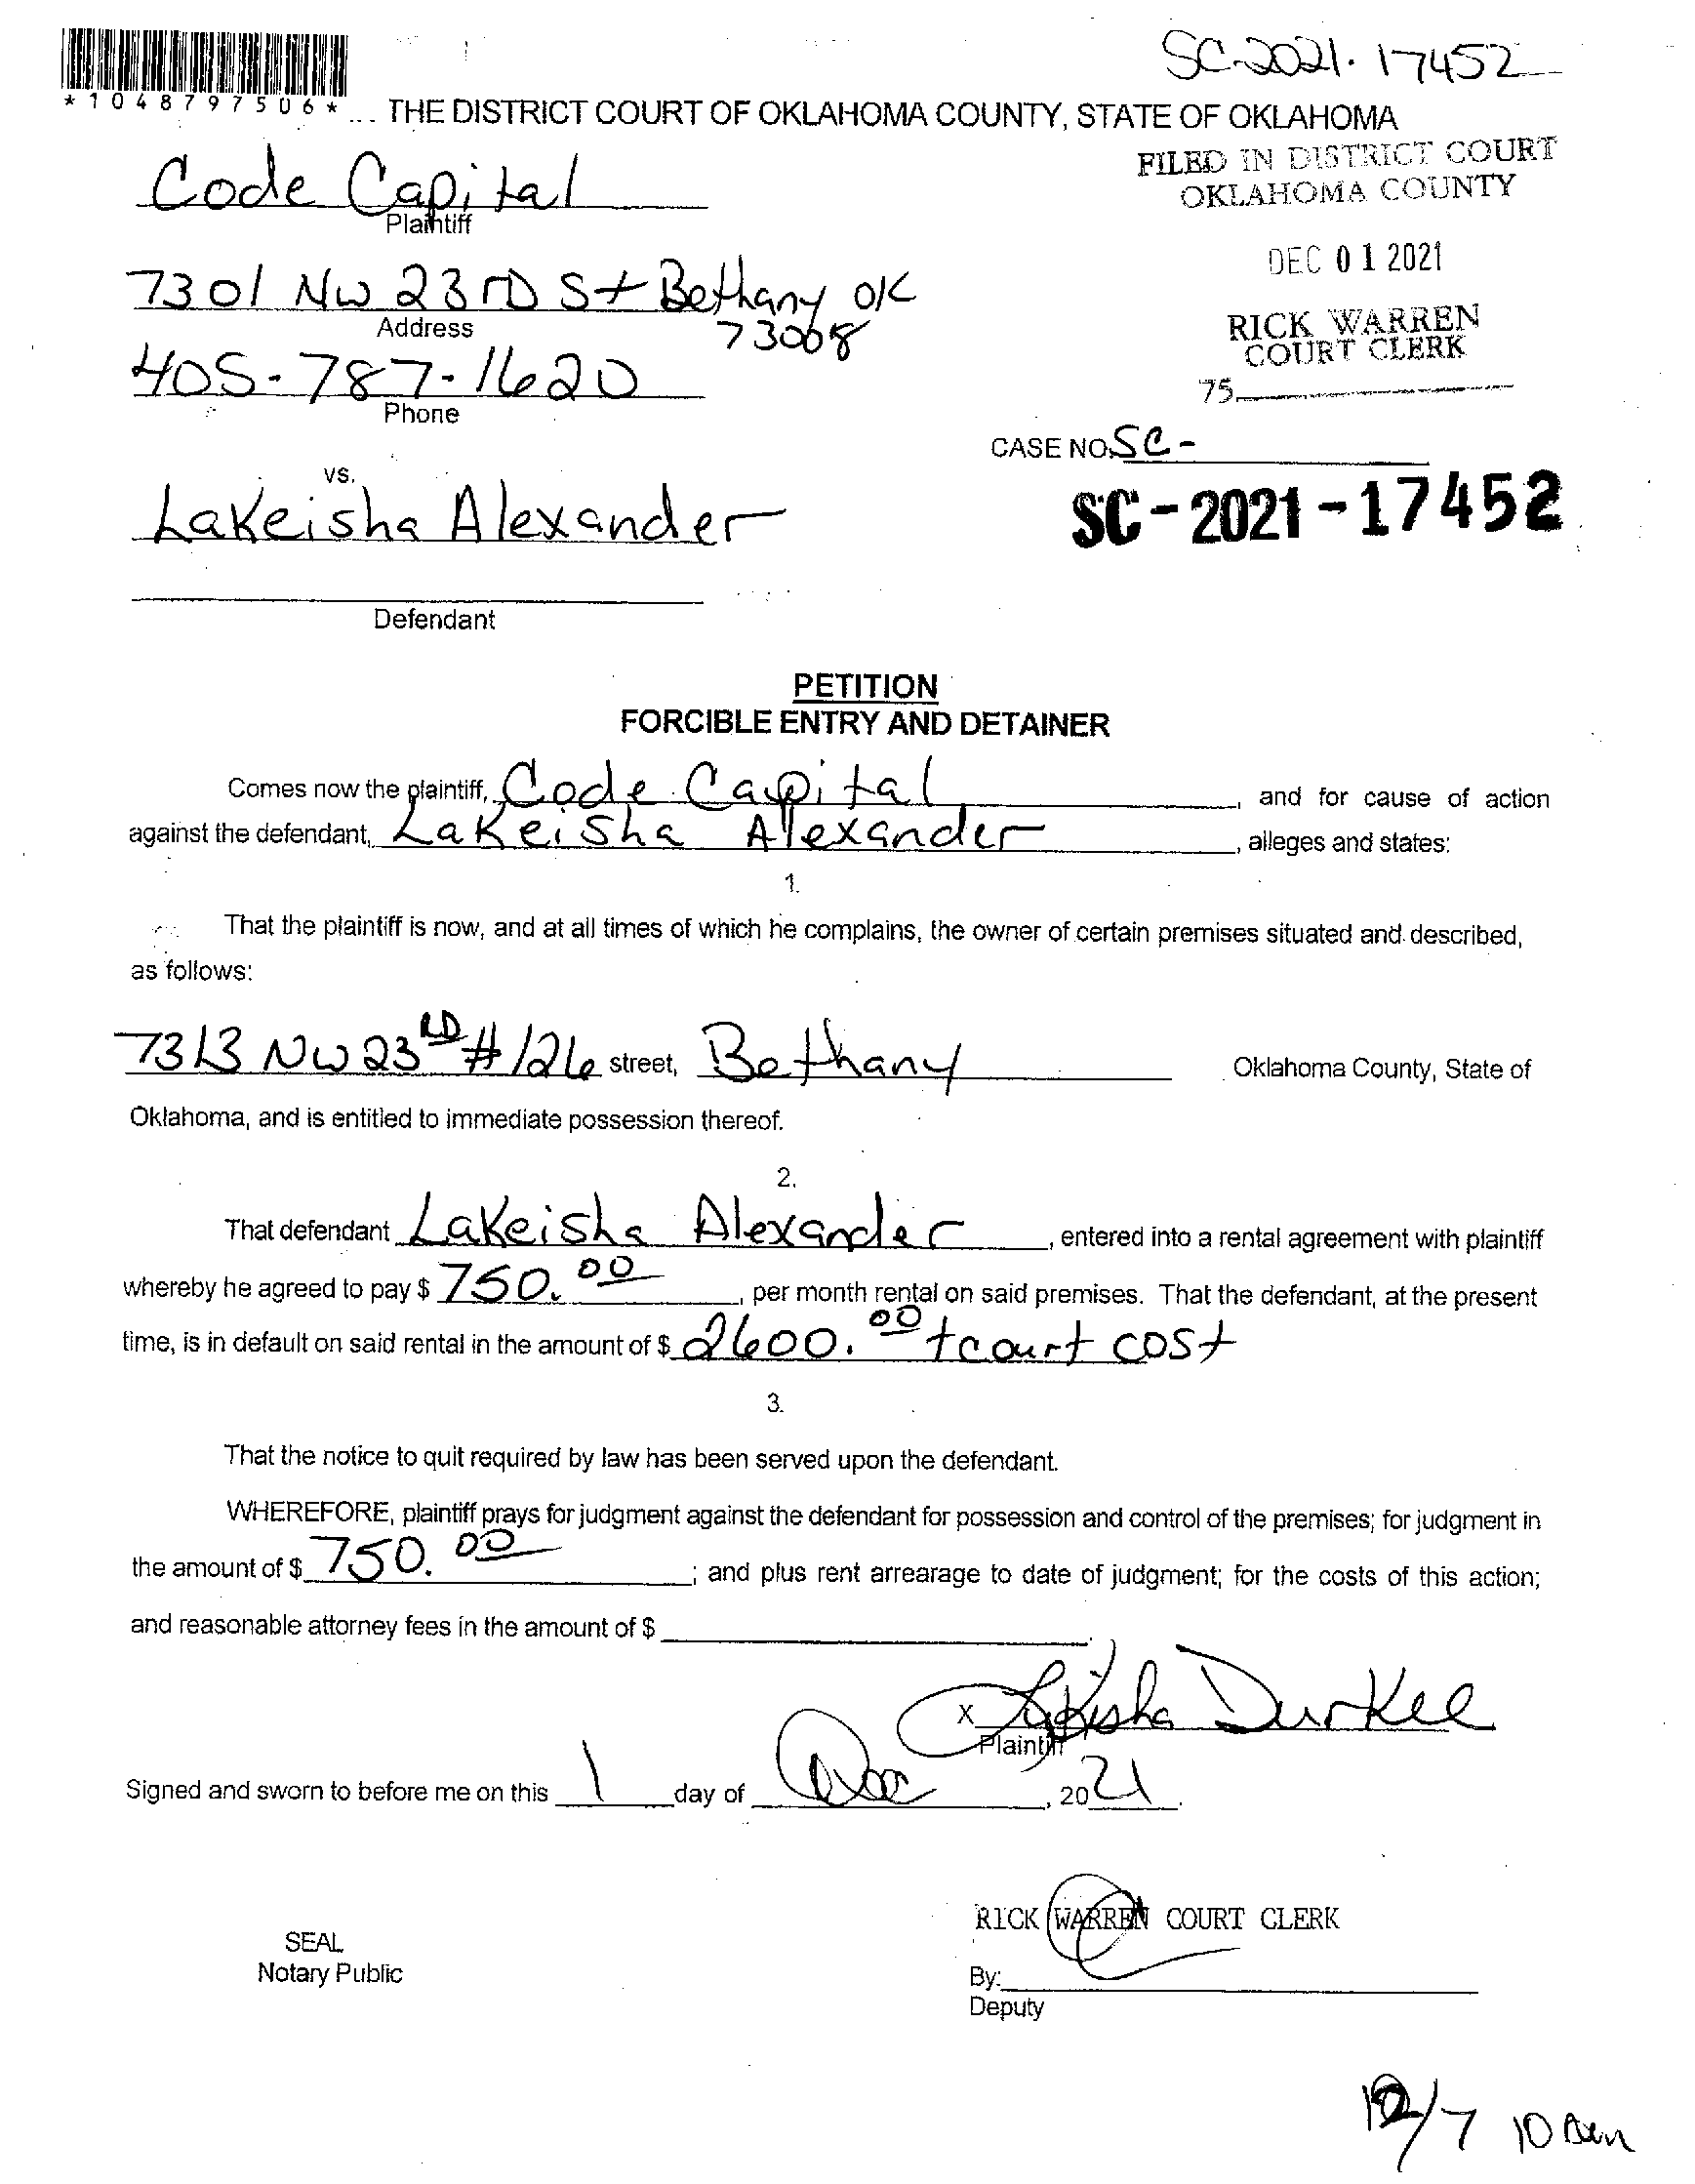 SC-2021-17452
*1048797506*
THE DISTRICT COURT OF OKLAHOMA COUNTY, STATE OF OKLAHOMA
FILED IN DISTRICT COURT
OKLAHOMA COUNTY
Code Capital
Plaintiff
DEC 01 2021
7301 NW 23rD St Bethany OK
73008
Address
RICK WARREN
COURT CLERK
405-787-1620
Phone
75
CASE NO. SC-
vs.
SC-2021-17452
Lakeisha Alexander
Defendant
PETITION
FORCIBLE ENTRY AND DETAINER
Comes now the plaintiff, Code Capital, and for cause of action
against the defendant, Lakeisha Alexander, alleges and states:
1.
That the plaintiff is now, and at all times of which he complains, the owner of certain premises situated and described,
as follows:
7313 NW 23RD #126 street, Bethany Oklahoma County, State of
Oklahoma, and is entitled to immediate possession thereof.
2.
That defendant Lakeisha Alexander, entered into a rental agreement with plaintiff
whereby he agreed to pay $ 750.00, per month rental on said premises. That the defendant, at the present
time, is in default on said rental in the amount of $ 2600.00 + court cost
3.
That the notice to quit required by law has been served upon the defendant.
WHEREFORE, plaintiff prays for judgment against the defendant for possession and control of the premises; for judgment in
the amount of $ 750.00; and plus rent arrearage to date of judgment; for the costs of this action;
and reasonable attorney fees in the amount of $
X Durkee
Plaintiff
Signed and sworn to before me on this 1 day of Dec, 2021.
RICK WARREN COURT CLERK
SEAL
Notary Public
By:
Deputy
12/7 10am